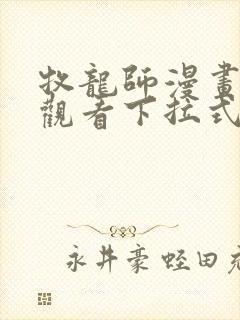 牧龍師漫畫
觀看下拉式
永井豪蛭田充